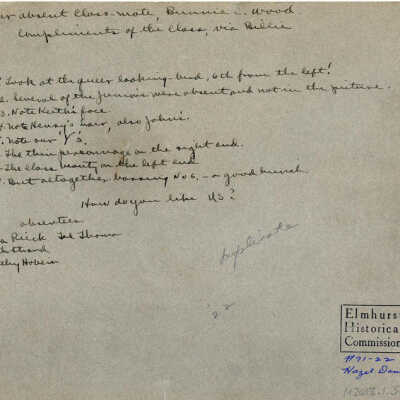 absent Class-mate, Bunnie L. Wood.
Compliments of the Class, via Billie
Look at the queer looking bird, 6th from the left!
2. Several of the Juniors were absent and not in the picture.
3. Note Keith's face.
4. Note Henry's hair, also John's.
Note our "Y"s.
The thin personnage on the right end.
The Class beauty on the left end
But altogether barring No 6, - a good bunch
How do you like US?
absentees
Rieck
Hobein
Duplicate
'22
Elmhurst
Historical
Commission
#71-22
Hazel